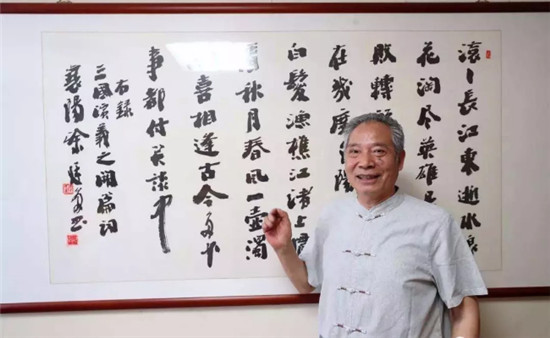 滚〻長江東逝水浪
花淘尽英雄
敗轉
在幾度
白髮漁樵江渚上慣
秋月春風一壺濁
喜相逢古今多少
事都付笑談中
右録
三國演義之開篇詞
襄陽徐